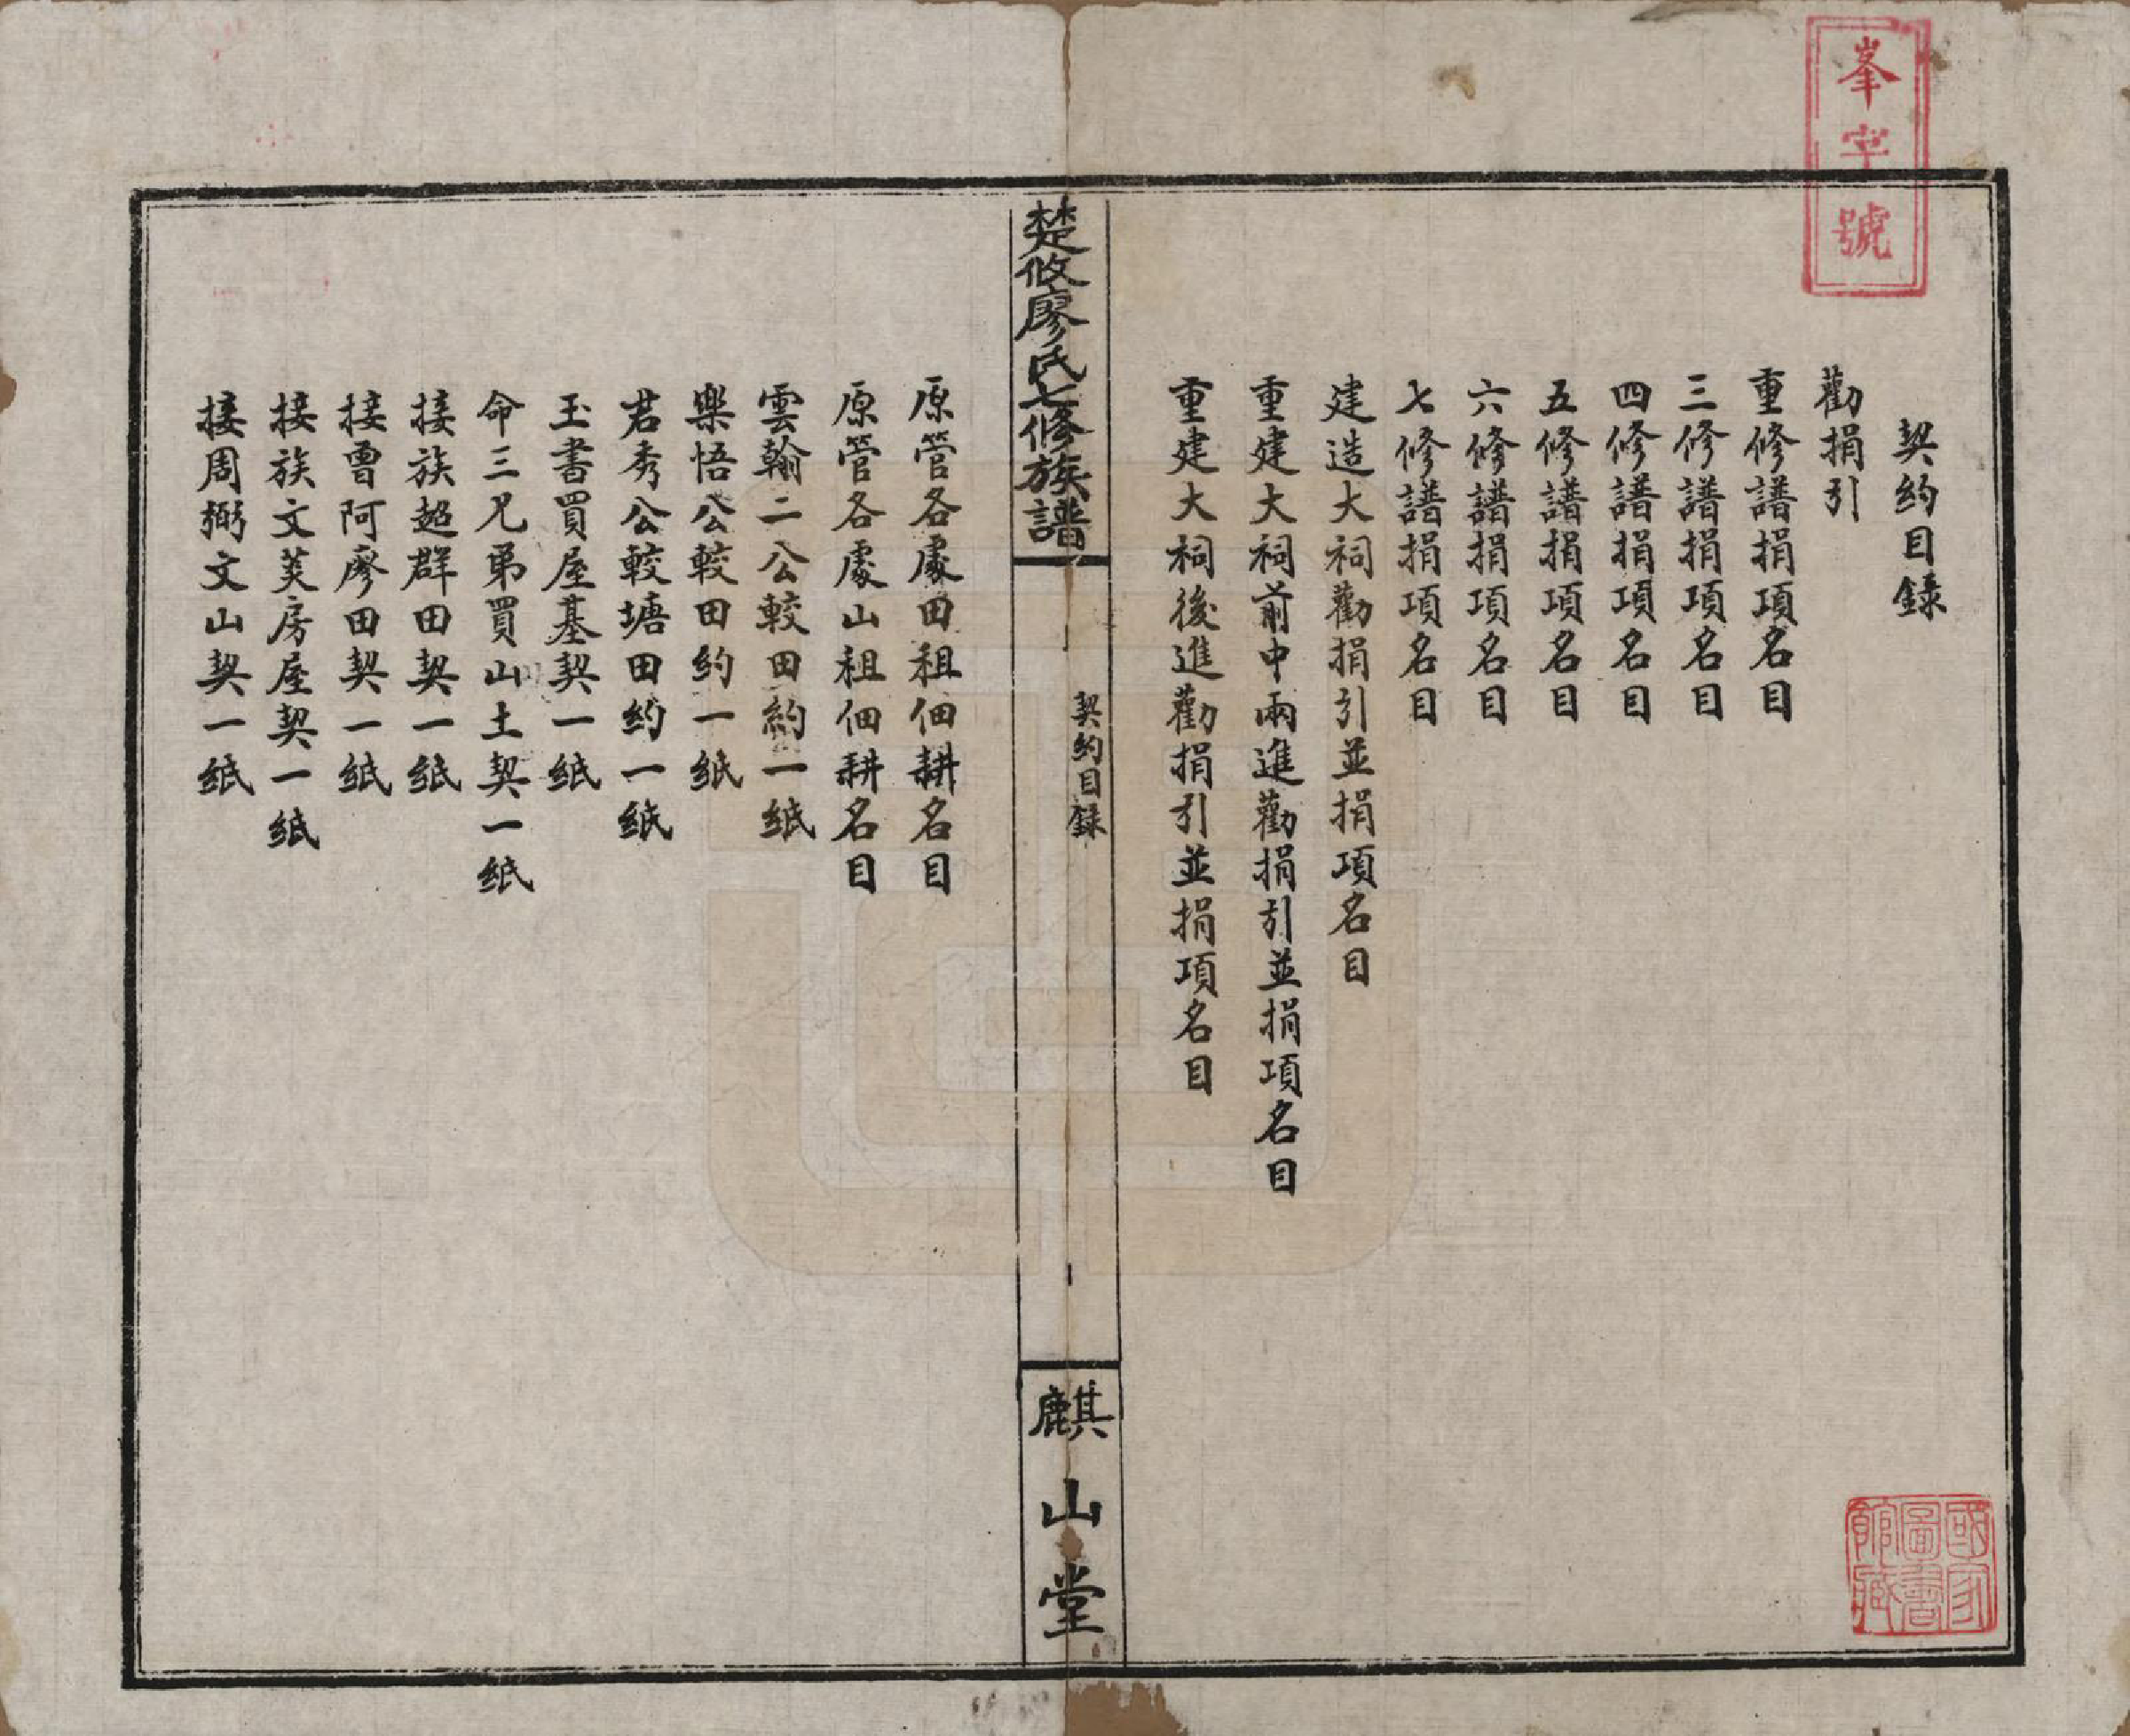 峯字號
契約目錄
勸捐引
重修譜捐項名目
三修譜捐項名目
四修譜捐項名目
五修譜捐項名目
六修譜捐項名目
七修譜捐項名目
建造大祠勸捐引並捐項名目
重建大祠前中兩進勸捐引並捐項名目
重建大祠後進勸捐引並捐項名目
楚攸廖氏七修族譜
契約目録
一
麒山堂
原管各處田租佃耕名目
原管各處山租佃耕名目
雲翰二公較田約一紙
樂悟公較田約一紙
君秀公較塘田約一紙
玉書買屋基契一紙
命三兄弟買山土契一紙
接族超群田契一紙
接曹阿廖田契一紙
接族文美房屋契一紙
接周弼文山契一紙
國家圖書館藏